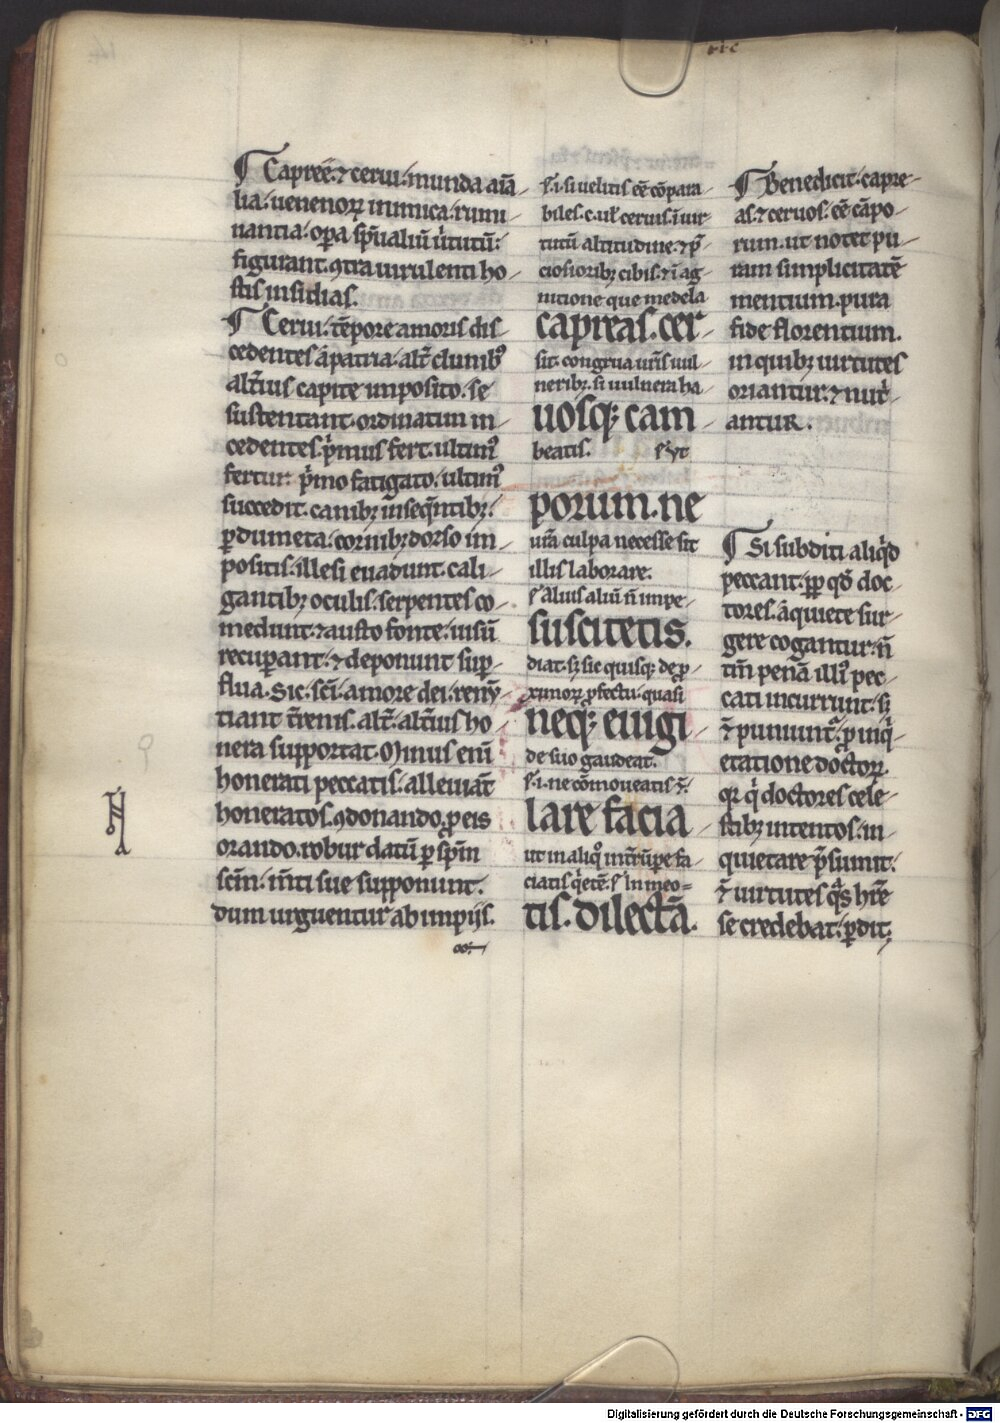 ¶ Capreę. ⁊ cerui. munda aīa
lia. uenenoꝝ inimica. rumi
nantia. oꝑa sp̄ualiū uͥtutū.
figurant. ꝯtra uirulenti ho
stis insidias.
¶ Cerui. tēpore amoris dis
cedentes a patria. alt̄ clunibꝰ
alt̄ius capite imposito. se
sustentant. ordinatim in
cedentes. pͥmus fert. ultimꝰ
fertur. pͥmo fatigato. ultimꝰ
succedit. canibꝫ inseqn̄tibꝫ.
ꝑ dumeta. cornibꝫ dorso im
positis. illesi euadunt. cali
gantibꝫ oculis. serpentes co
medunt. ⁊ austo fonte. uisū
recuꝑant. ⁊ deponunt suꝑ
flua. Sic. sc̄i. amore dei. renū
tiant t̄renis. alt̄. alt̄ius ho
nera supportat. Minus enī
honerati peccatis. alleuiāt
honeratos. ꝯdonando. ꝓ eis
orando. robur datū ꝑ sp̄m
sc̄m. mn̄ti sue supponunt.
dum urguentur ab impijs.
s. i. si uelitis eē cōpara
biles. c. ul̓ ceruis. ī uir
tutū altitudine. ⁊ p̄
ciosioribꝫ cibis. ⁊ ī ag
nitione que medela
capreas. cer
sit. congrua ur̄is uul
neribꝫ. si uulnera ha
uosqꝫ cam
beatis.
porum. ne
ur̄a culpa necesse sit
illis laborare.
s. Alius aliū n̄ impe
suscitetis.
diat. sꝫ sic quisqꝫ de ꝓ
ximoꝝ ꝓfectu. quasi
neqꝫ euigi
de suo gaudeat.
s. i. ne cōmoueatis
lare facia
ut in aliqͦ int̄rūpe fa
ciatis qͥetē. s. in meo
tis. dilectā.
¶ Benedicit. capre
as. ⁊ ceruos. eē cāpo
rum. ut notet pu
ram simplicitatē
mentium. pura
fide florentium.
in quibꝫ uirtutes
oriantur. ⁊ nutͥ
antur.
¶ Si subditi aliqͥd
peccant. ꝓp̄ qđ doc
tores. a quiete sur
gere cogantur. n̄
tm̄ penā illiꝰ pec
cati incurrunt. sꝫ
⁊ puniunt᷑. ꝓ inqͥ
etatione doctoꝝ.
qꝛ qͥ doctores cele
stibꝫ intentos. in
quietare p̄sumit.
⁊ uirtutes qᷓs hr̄e
se credebat. ꝑdit.